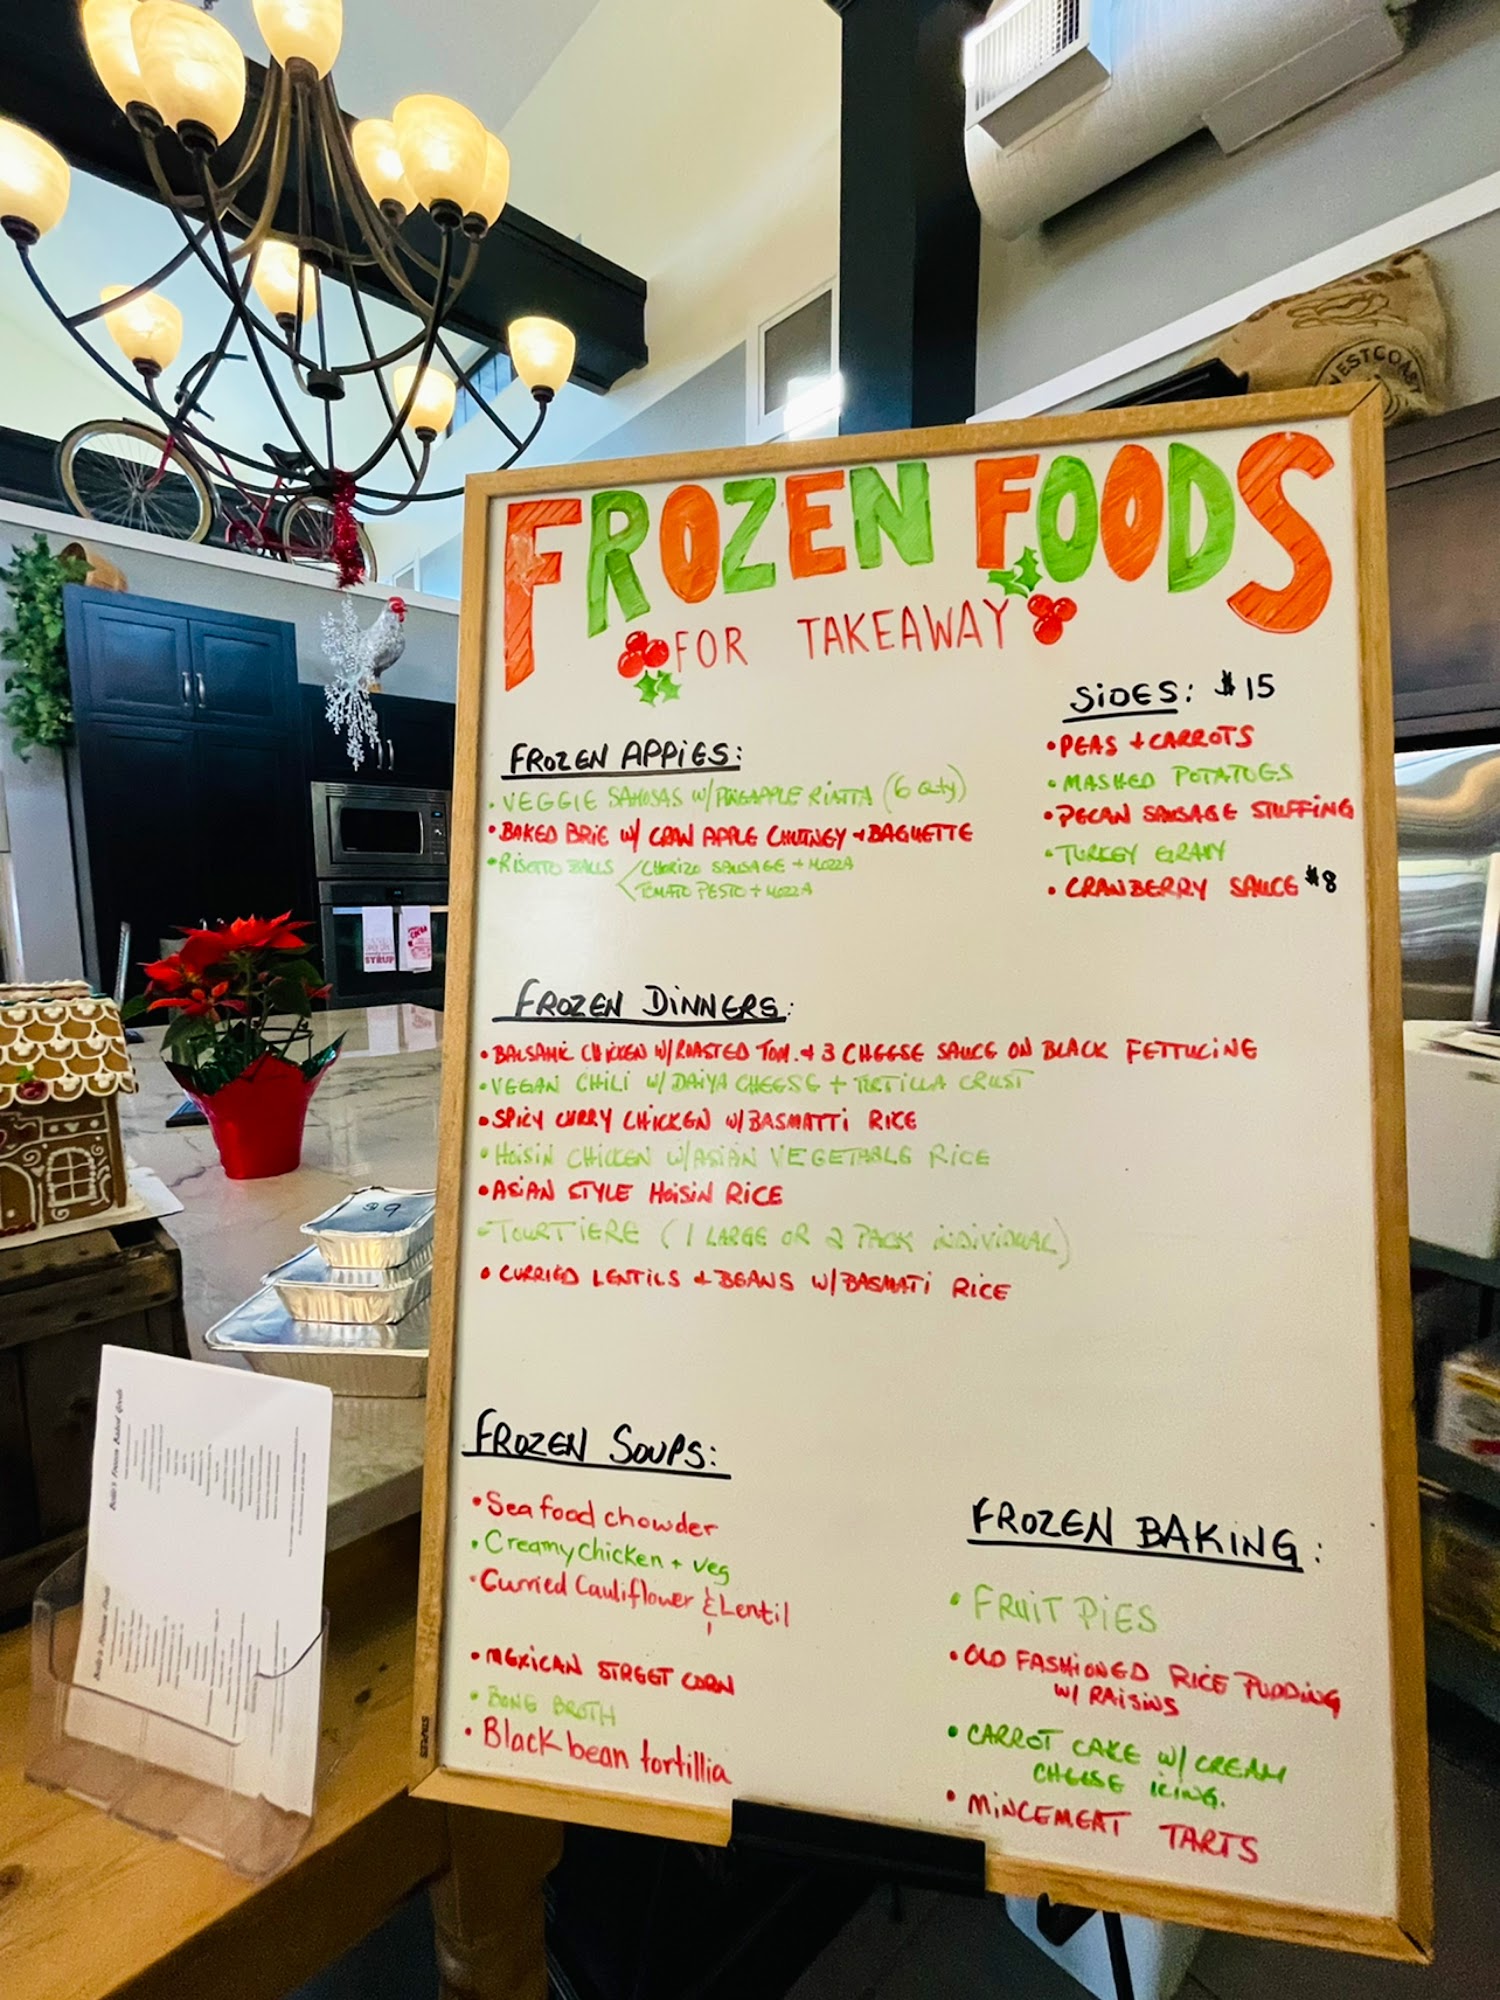 FROZEN FOODS
FOR TAKEAWAY
SIDES: $15
• PEAS + CARROTS
• MASHED POTATOES
• PECAN SAUSAGE STUFFING
• TURKEY GRAVY
• CRANBERRY SAUCE $8
FROZEN APPIES:
• VEGGIE SAMOSAS W/ PINEAPPLE RIATTA (6 Qty)
• BAKED BRIE W/ CRAN APPLE CHUTNEY + BAGUETTE
• RISOTTO BALLS CHORIZO SAUSAGE + MOZZA
TOMATO PESTO + MOZZA
FROZEN DINNERS:
• BALSAMIC CHICKEN W/ ROASTED TOM. + 3 CHEESE SAUCE ON BLACK FETTUCINE
• VEGAN CHILI W/ DAIYA CHEESE + TORTILLA CRUST
• SPICY CURRY CHICKEN W/ BASMATTI RICE
• HOISIN CHICKEN W/ ASIAN VEGETABLE RICE
• ASIAN STYLE HOISIN RICE
• TOURTIERE (1 LARGE OR 2 PACK INDIVIDUAL)
• CURRIED LENTILS + BEANS W/ BASMATI RICE
FROZEN SOUPS:
• Seafood chowder
• Creamy chicken + veg
• Curried Cauliflower & Lentil
• MEXICAN STREET CORN
• BONE BROTH
• Black bean tortillia
FROZEN BAKING:
• FRUIT PIES
• OLD FASHIONED RICE PUDDING
W/ RAISINS
• CARROT CAKE W/ CREAM
CHEESE ICING.
• MINCEMEAT TARTS
WESTCOAST
STAPLES
SYRUP
COCOA